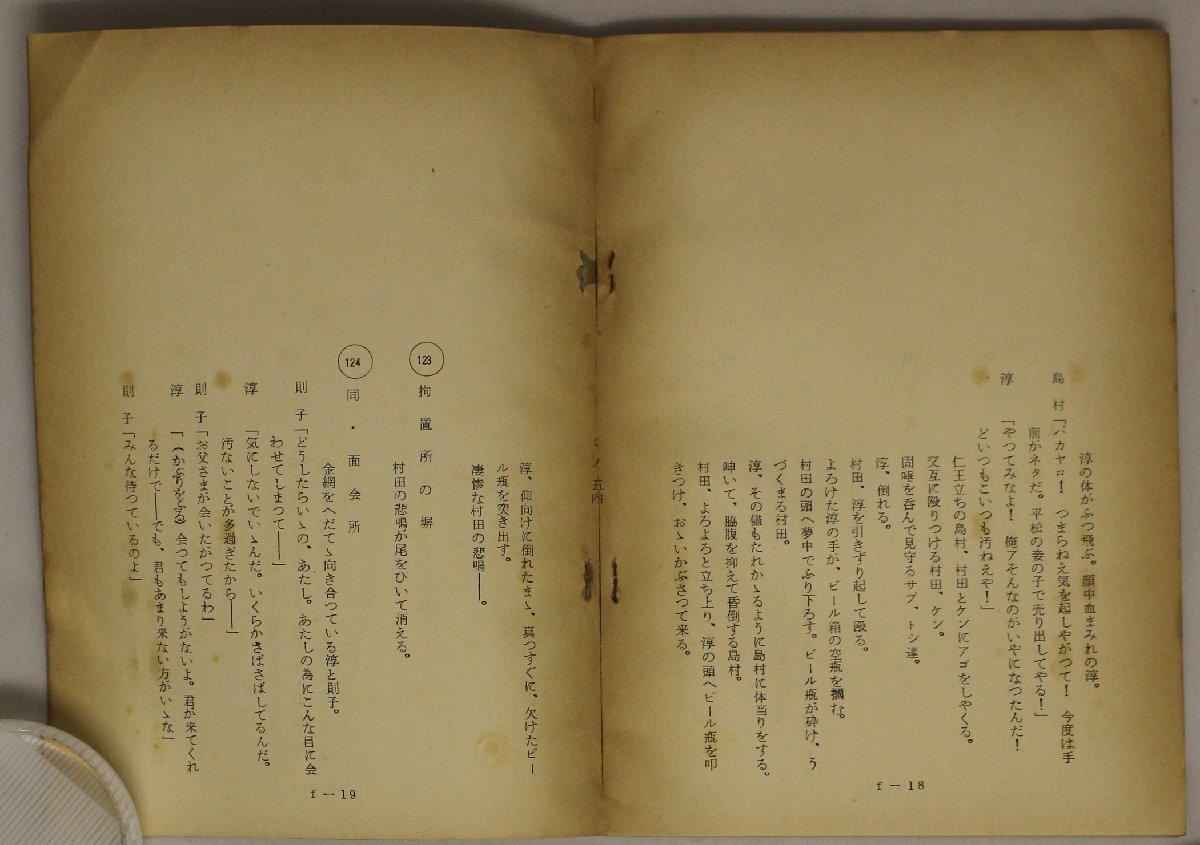 淳の体がふつ飛ぶ。顔中血まみれの淳。
島村「バカヤロ！　つまらねえ気を起しやがつて！　今度は手
前がネタだ。平松の妾の子で売り出してやる！」
淳　「やつてみなよ！　俺アそんなのがいやになつたんだ！
どいつもこいつも汚ねえや！」
仁王立ちの島村、村田とケンにアゴをしやくる。
交互に殴りつける村田、ケン。
固唾を呑んで見守るサブ、トシ達。
淳、倒れる。
村田、淳を引きずり起して殴る。
よろけた淳の手が、ビール箱の空瓶を摑む。
村田の頭へ夢中でふり下ろす。ビール瓶が砕け、う
づくまる村田。
淳、その儘もたれかゝるように島村に体当りをする。
呻いて、脇腹を抑えて昏倒する島村。
村田、よろよろと立ち上り、淳の頭へビール瓶を叩
きつけ、おゝいかぶさつて来る。
f－18
淳、仰向けに倒れたまゝ、真つすぐに、欠けたビー
ル瓶を突き出す。
凄惨な村田の悲鳴――。
123　拘置所の塀
村田の悲鳴が尾をひいて消える。
124　同・面会所
金網をへだてゝ向き合つている淳と則子。
則子「どうしたらいゝの、あたし。あたしの為にこんな目に会
わせてしまつて――」
淳　「気にしないでいゝんだ。いくらかさばさばしてるんだ。
汚ないことが多過ぎたから――」
則子「お父さまが会いたがつてるわ」
淳　「（かぶりをふる）会つてもしようがないよ。君が来てくれ
るだけで――でも、君もあまり来ない方がいゝな」
則子「みんな待つているのよ」
f－19